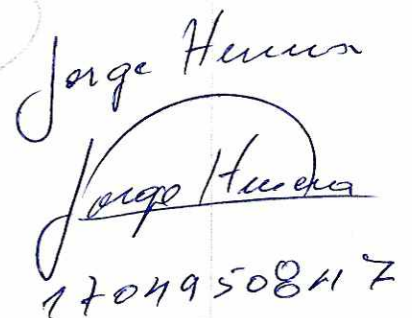 Jorge Herrera
Jorge Herrera
1704950847